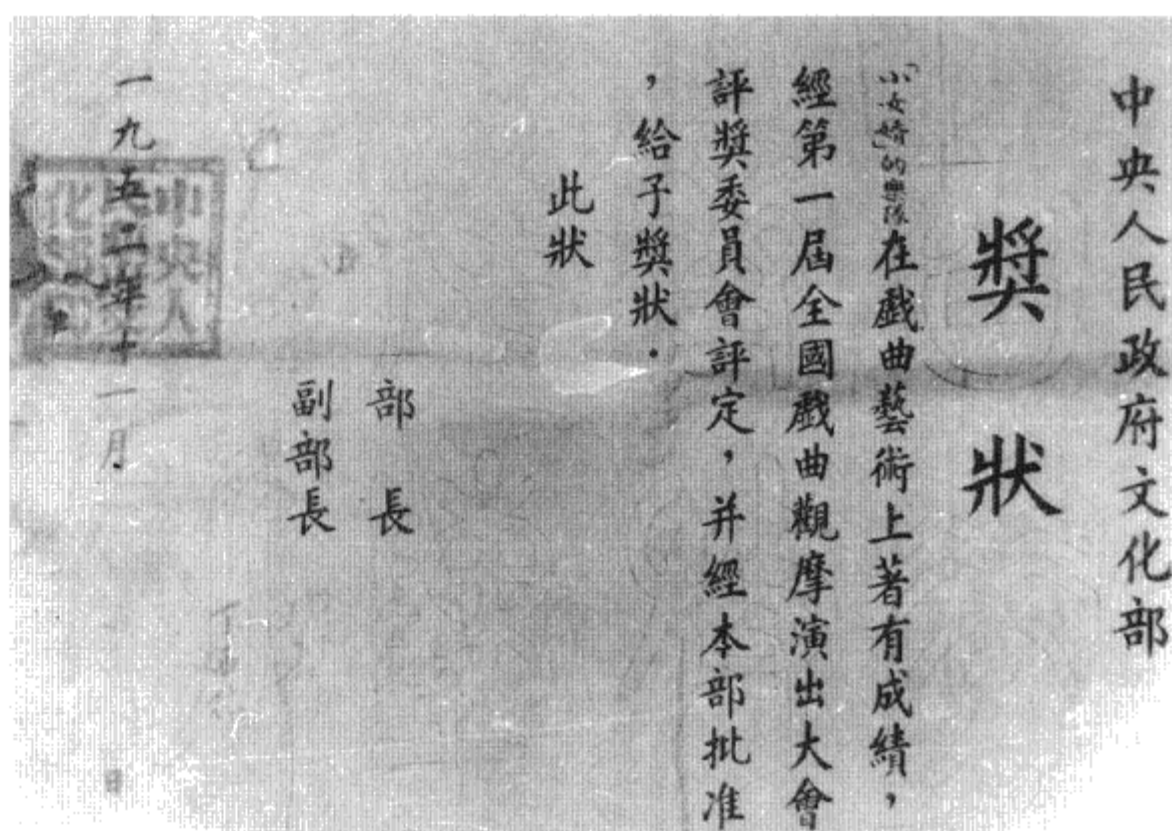 中央人民政府文化部
獎狀
「小女婿」的樂隊在戲曲藝術上著有成績，
經第一屆全國戲曲觀摩演出大會
評獎委員會評定，并經本部批准
，給予獎狀．
此狀
部長
副部長
一九五二年十一月 日